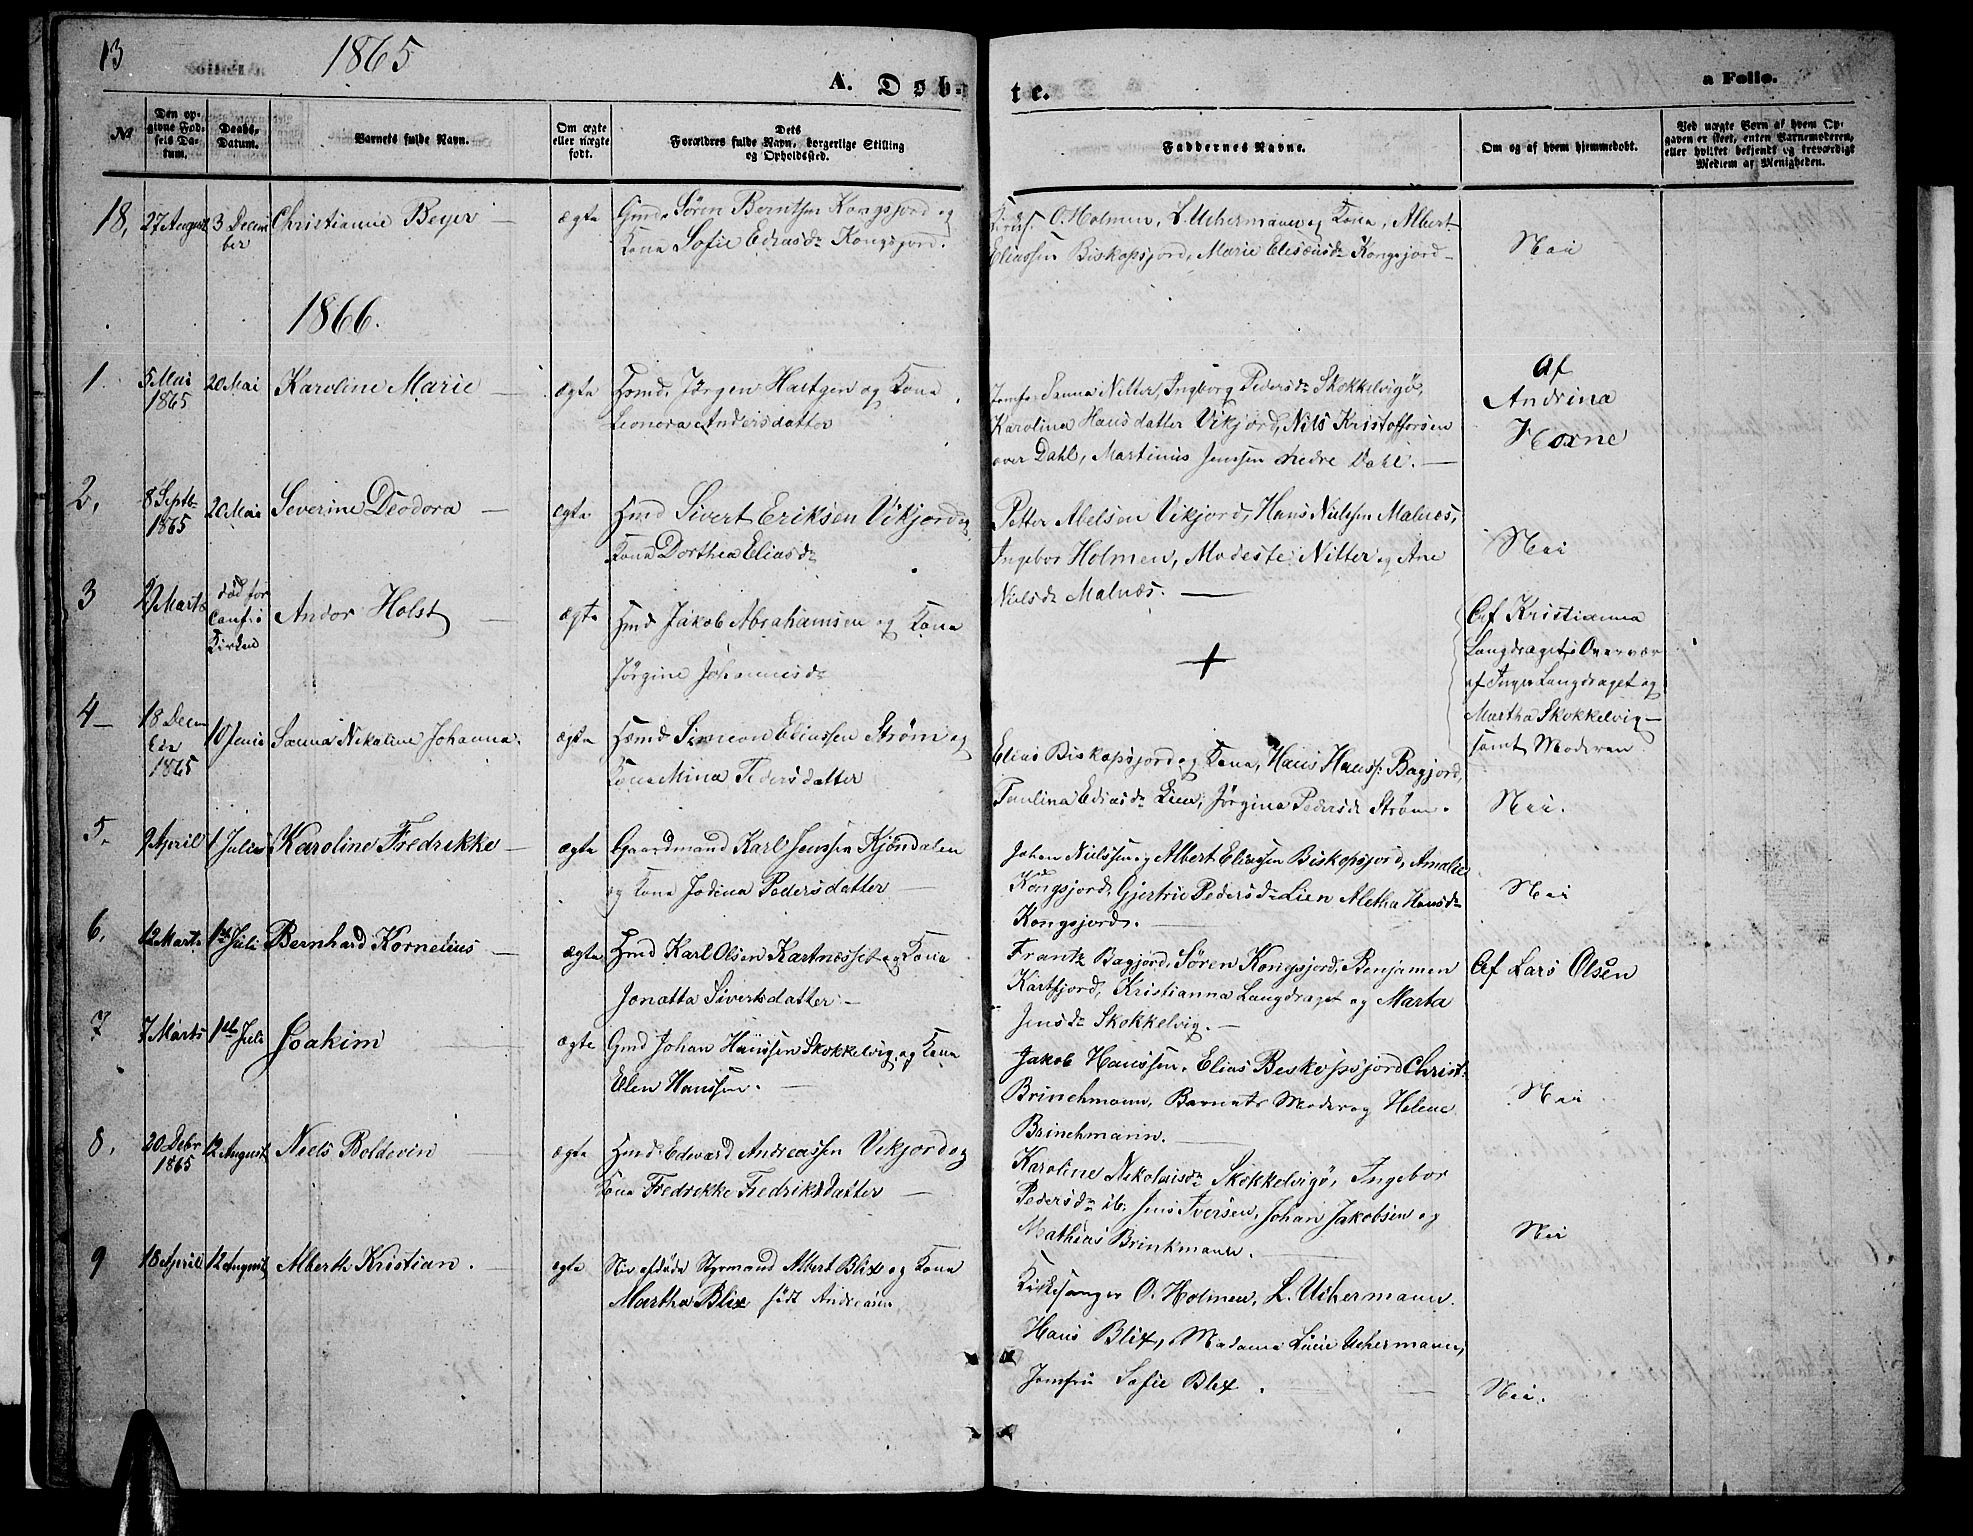 13
1865
A. Døb-
te.
a Folio.
№
Den opgivne Fødsels Datum.
Daabs-Datum.
Barnets fulde Navn.
Om ægte eller uægte født.
Dets Forældres fulde Navn, borgerlige Stilling og Opholdssted.
Faddernes Navne.
Om og af hvem hjemmedøbt.
Ved uægte Børn af hvem Opgaven er skeet, enten Barnemoderen, eller hvilket bekjendt og troværdigt Medlem af Menigheden.
18,
27 August
3 Decem
ber
Christianne Beyer —
ægte
Gmd. Søren Berntsen Kongsjord og
Kona Sofie Ediasdr Kongsjord.
Kirks. O. Holmen, L. Uchermann og Kona, Albert
Eliassen Biskopsjord, Marie Eliseusdr Kongsjord —
Nei
1866.
1.
5 Mai
1865
20 Mai
Karoline Marie —
ægte
Hsmd. Jørgen Hartgen og Kona
Leonora Andersdatter
Jomfr. Sanna Nitter, Ingborg Pedersdr Skokkelvigø,
Karolina Hansdatter Vikjord, Nils Kristoffersen
over Dahl, Martinus Jenssen nedre Dahl. —
Af
Andrina
Horne
2,
8 Septb
1865
20 Mai
Severine Deodora —
ægte
Hmd Sivert Eriksen Vikjord og
Kona Dorthea Eliasdr
Petter Abelsen Vikjord, Hans Nielssen Malnæs,
Ingebor Holmen, Modeste Nitter og Ane
Nielsdr Malnæs. —
Nei
3
27 Marts
død før
Kirken
Andor Holst —
ægte
Hmd Jakob Abrahamsen og Kona
Jørgine Johannesdr
+
Af Kristianna
Langdraget i Overvær
af Inger Langdraget og
Martha Skokkelvig —
samt Moderen
4 —
18 Decem
ber
1865
10 Juni
Sanna Nikoline Johanna.
ægte
Hsmd. Simeon Eliassen Strøm og
Kona Mina Pedersdatter
Elias Biskopsjord og Kona, Hans Hanss: Bagjord,
Paulina Ediasdr Lien, Jørgina Pedersdr Strøm.
Nei.
5.
9 April
1 Juli
Karoline Fredrikke —
ægte
Gaardmand Karl Jenssen Kjøndalen
og Kona Jodina Pedersdatter —
Johan Nielssen og Albert Eliassen Biskopsjord, Amalie
Kongsjord, Gjertrue Pedersdr Lien Aletha Hansdr
Kongsjord. —
Nei
6,
12 Marts
1st Juli
Bernhard Kornelius —
ægte
Hmd Karl Olsen Kartnæsset og Kona
Jonetta Sivertsdatter —
Frantz Bagjord, Søren Kongsjord, Benjamen
Kartfjord, Kristianna Langdraget og Marta
Jensdr Skokkelvig. —
Af Lars Olsen
7
7 Marts
1ste Juli
Joakim —
ægte
Gmd Johan Hanssen Skokkelvig, og Kona
Elen Hanssen. —
Jakob Hanssen, Elias Beskopsjord Christ:
Brinchmann, Barnets Moder og Helene
Brinchmann. —
Nei
8,
20 Debr
1865
12 August
Neels Boldevin —
ægte
Hmd. Edward Andreassen Vikjord og
Kona Fredrekke Fredriksdatter —
Karoline Nikolaisdr Skokkelvigø, Ingebor
Pedersdr ib. Jens Iversen, Johan Jakobsen og
Mathias Brinkmann. —
Nei
9
18 April
12 August
Alberth Kristian. —
ægte
Nu afdøde Styrmand Albert Blix og Kona
Martha Blix født Andreasen
Kirkesanger O. Holmen, L. Uchermann.
Hans Blix, Madama Lucie Uchermann,
Jomfru Sofie Blix. —
Nei.